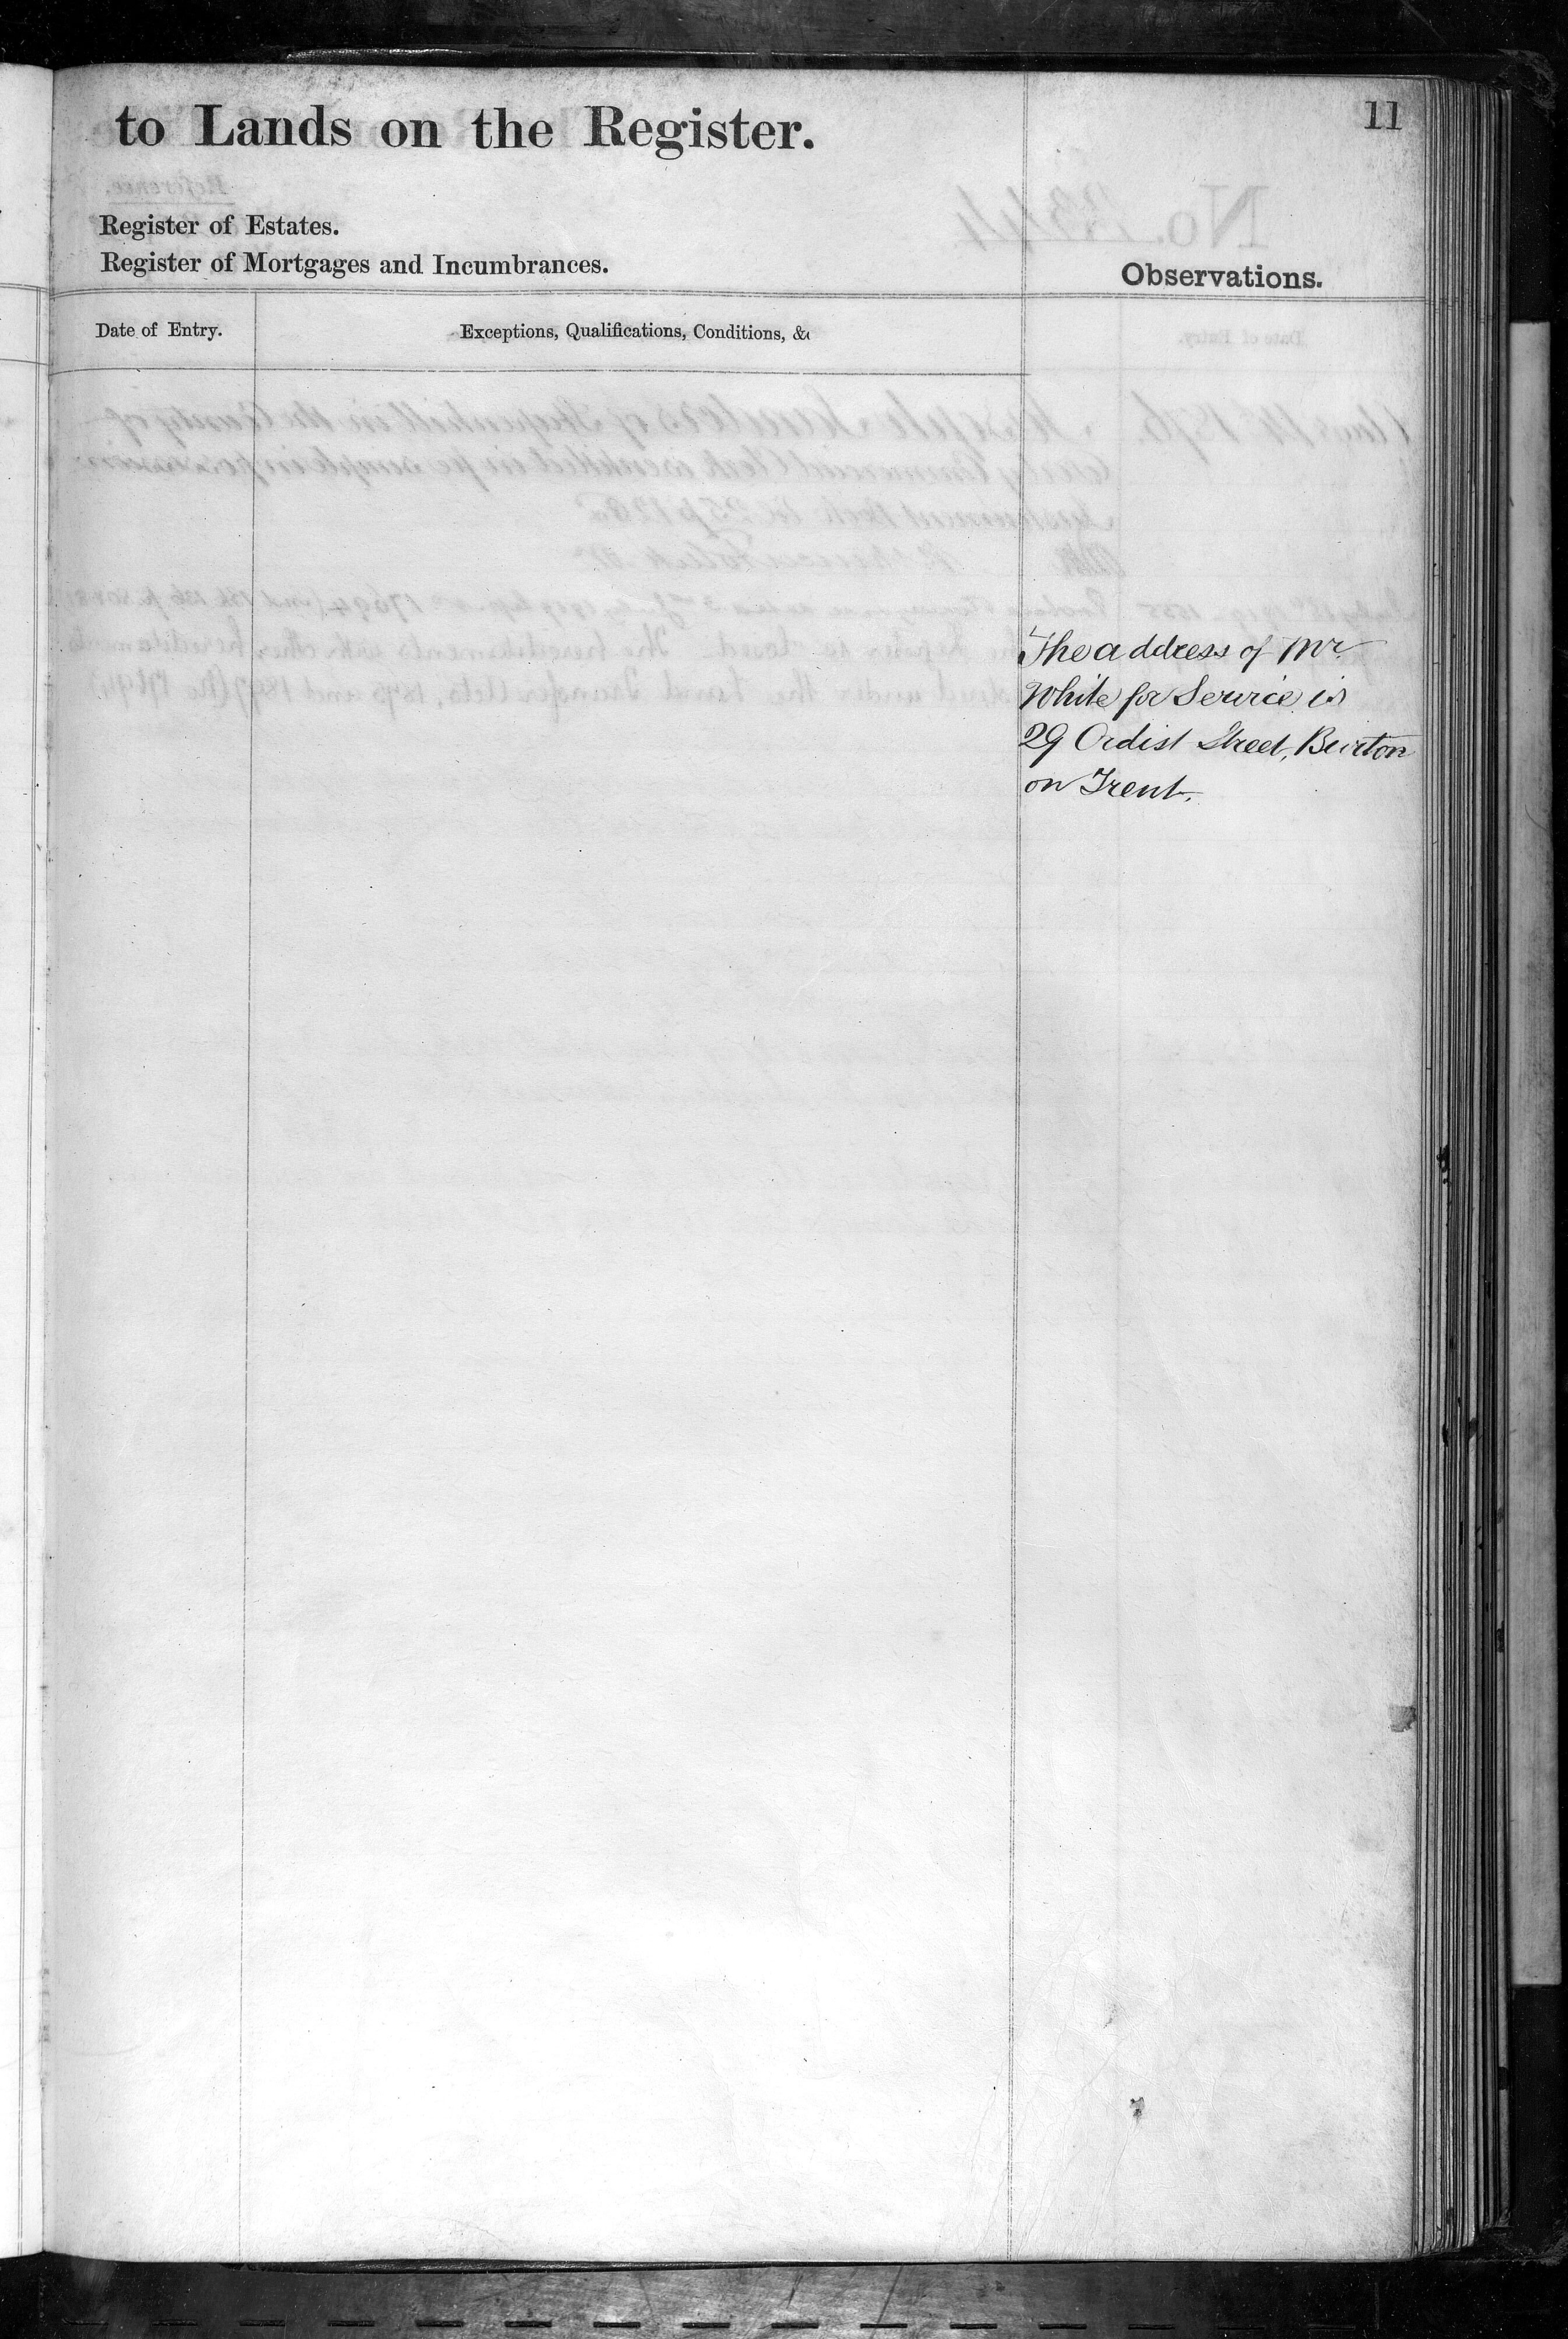 11
to Lands on the Register.
Register of Estates.
Register of Mortgages and Incumbrances.
Observations.
Date of Entry.
Exceptions, Qualifications, Conditions, &c
The address of Mr.
White for Service is
29 Ordist Street, Burton
on Trent.